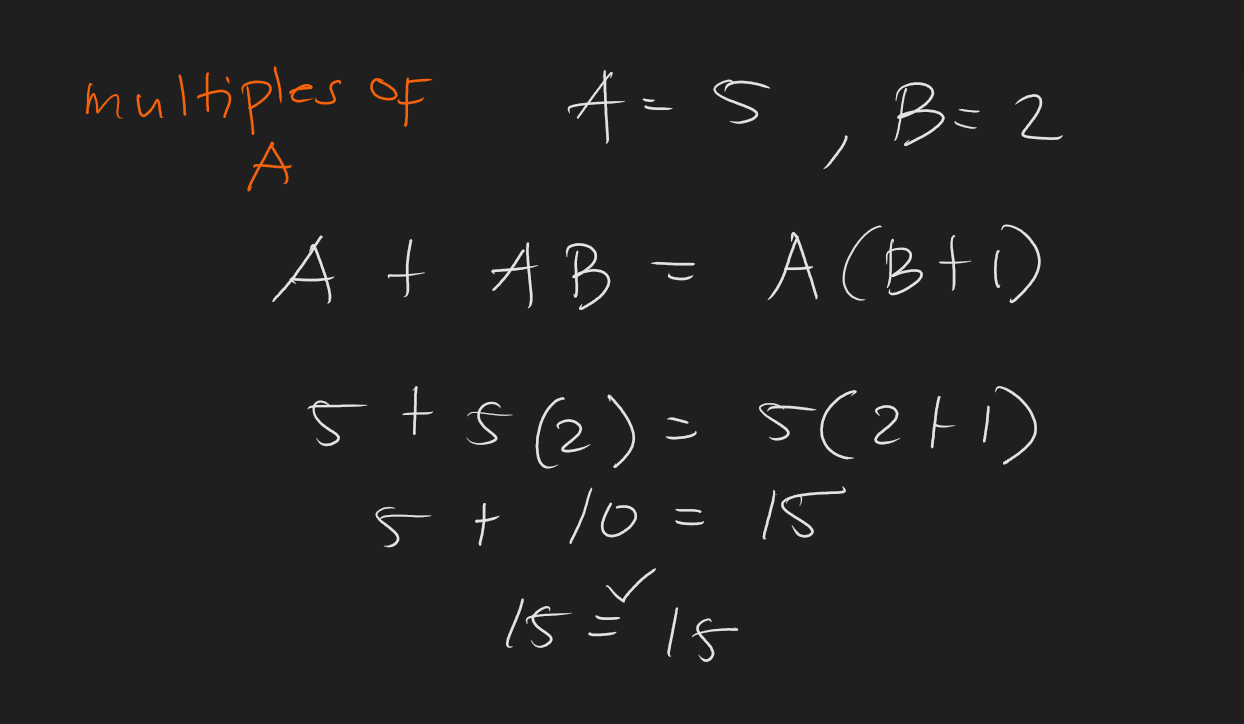 multiples of
A
A = 5 , B = 2
A + AB = A(B+1)
5 + 5(2) = 5(2+1)
5 + 10 = 15
15 = 15 ✓